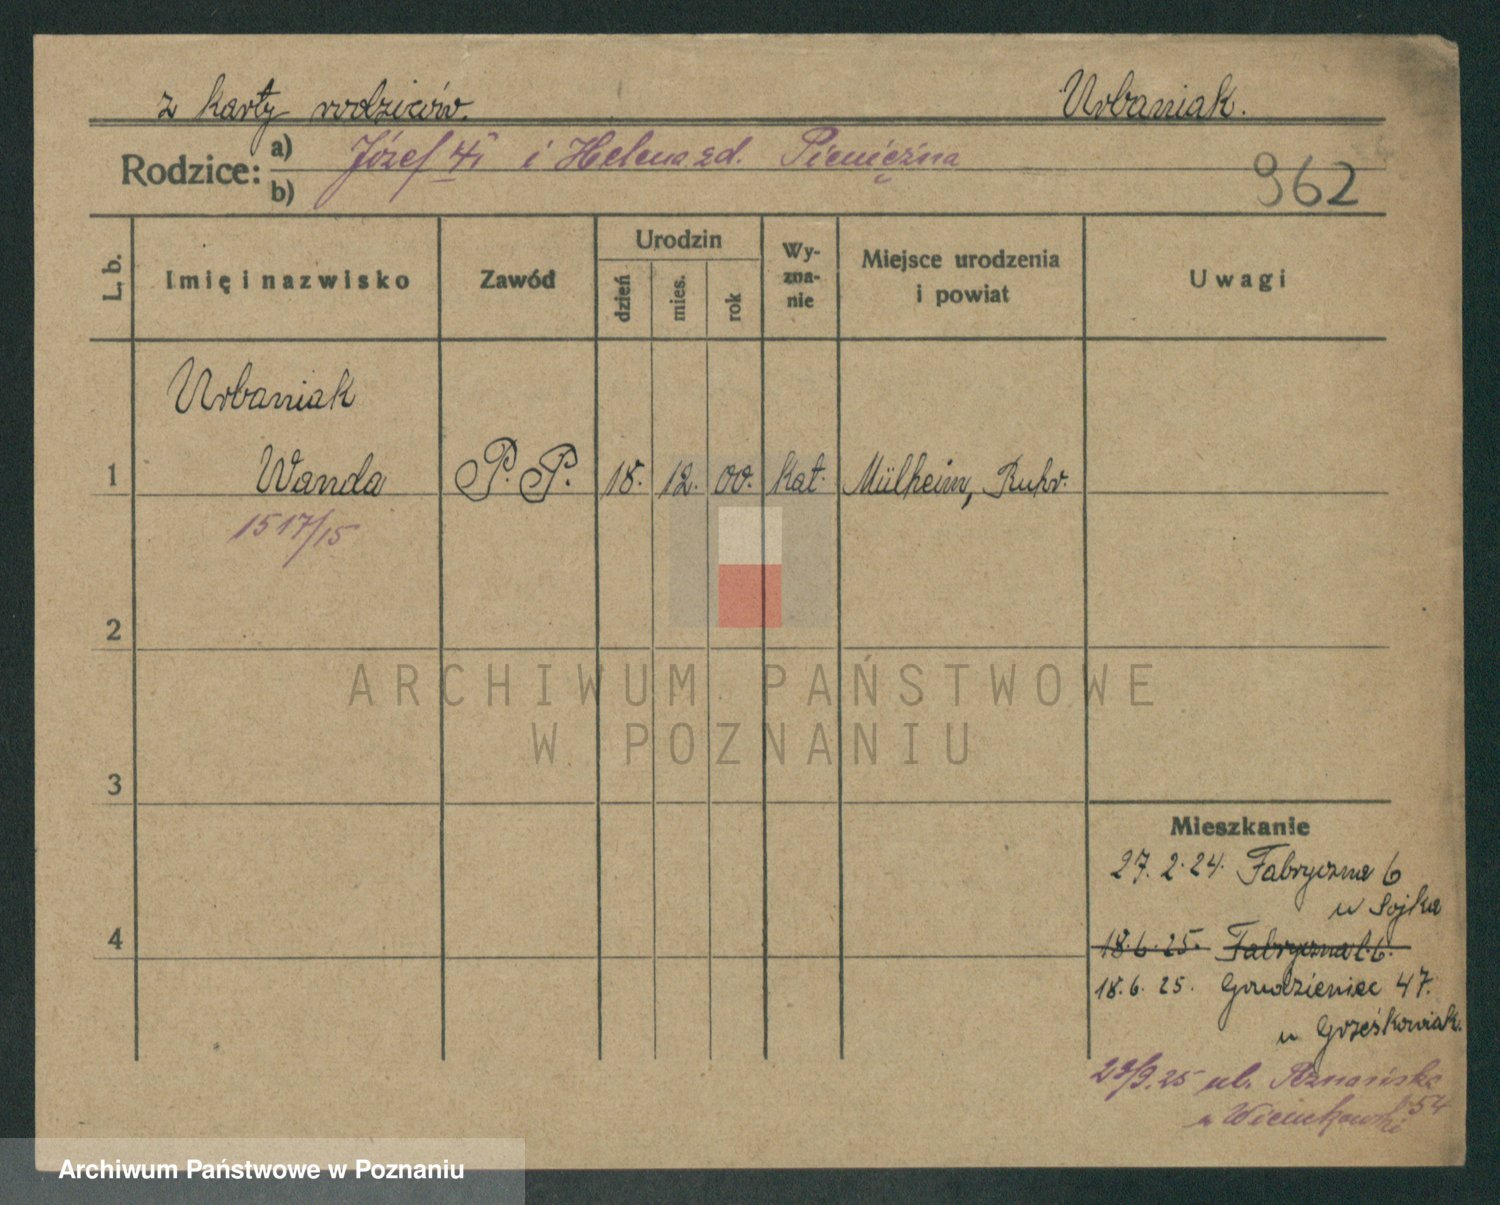 z karty rodziców. Urbaniak.
Rodzice: a) Józef i Helena zd. Pieniężna
b)
962
L. b. Imię i nazwisko Zawód Urodzin dzień mies. rok Wy-zna-nie Miejsce urodzenia i powiat Uwagi
Urbaniak
1 Wanda P. P. 18. 12. 00. kat. Mülheim, Ruhr.
1517/15
2
3
Mieszkanie
27. 2. 24. Fabryczna 6
u Sojka
4
18. 6. 25. Fabryczna l. 6.
18. 6. 25. Grudzieniec 47.
u Grześkowiak.
29/9. 25 ul. Poznańska 54
u
ARCHIWUM PAŃSTWOWE
W POZNANIU
Archiwum Państwowe w Poznaniu